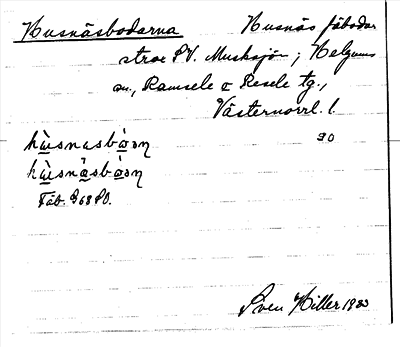 Husnäsbodarna Husnäs fäbodar
strax SV. Musksjön; Helgums
sn., Ramsele o Resele tg.,
Västernorrl. l.
hùsnasbòɑn 30
hùsnäsbòɑn
Fäb. 968 SO.
Sven Hiller 1933